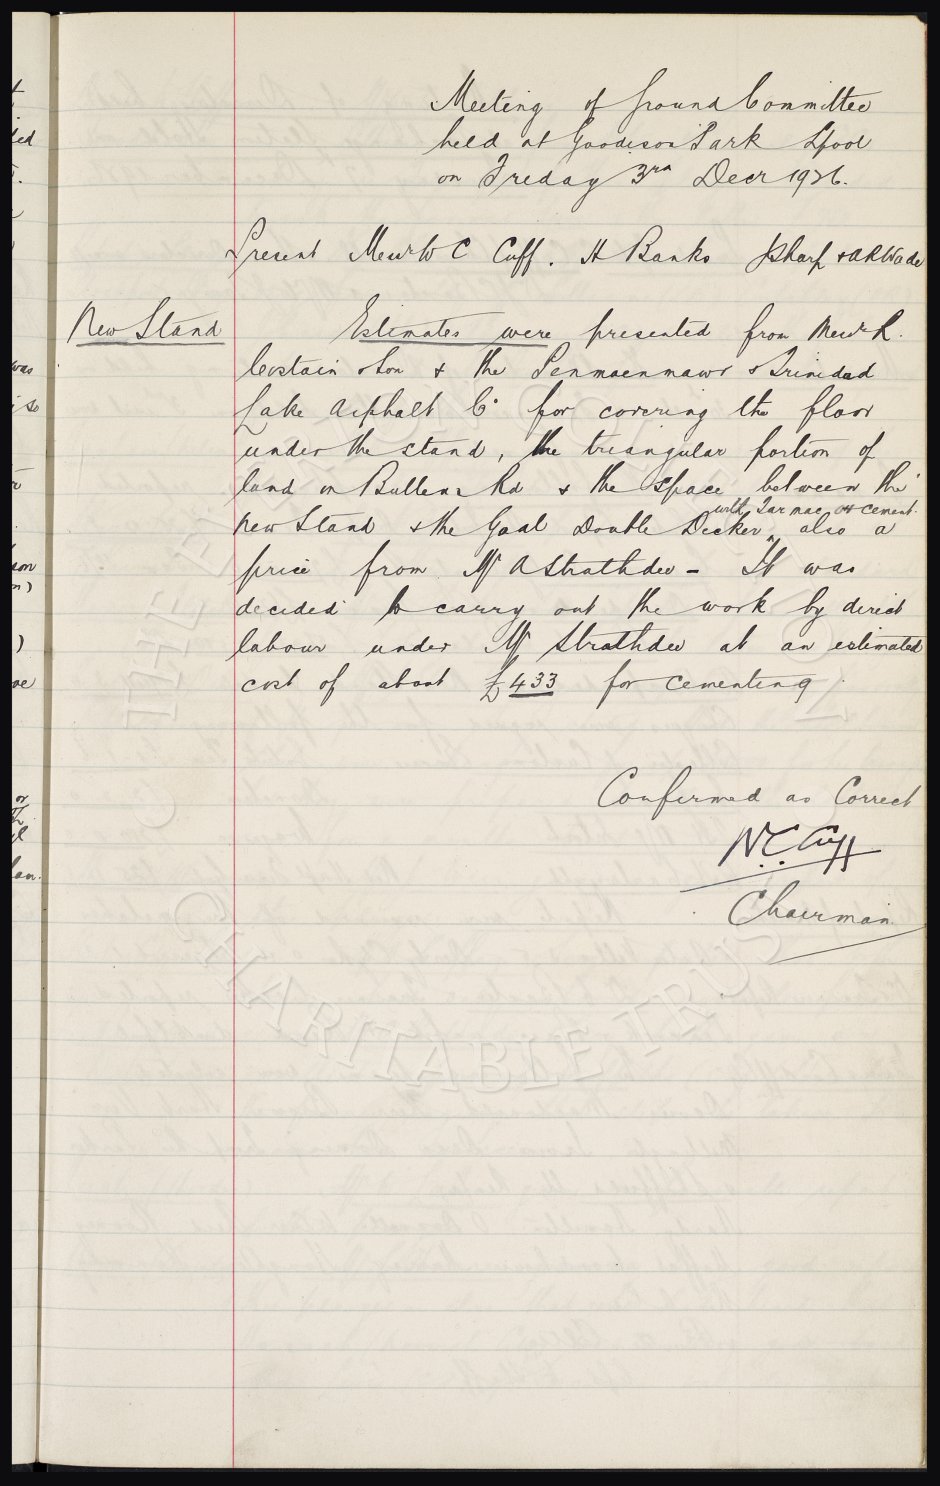 Meeting of Ground Committee
held at Goodison Park L'pool
on Friday 3rd Decr 1926.
Present Messrs W C Cuff. H Banks J Sharp & A R Wade
New Stand
Estimates were presented from Messrs R.
Costain & Son & the Penmaenmawr & Trinidad
Lake Asphalt Co for covering the floor
under the stand, the triangular portion of
land on Bullens Rd & the space between the
with Tar mac or cement.
New Stand & the Goal Double Decker, also a
price from Mr A Strathdee - It was
decided to carry out the work by direct
labour under Mr Strathdee at an estimated
cost of about £433 for cementing.
Confirmed as Correct
W.C. Cuff
Chairman.
THE EVERTON COLLECTION
CHARITABLE TRUST